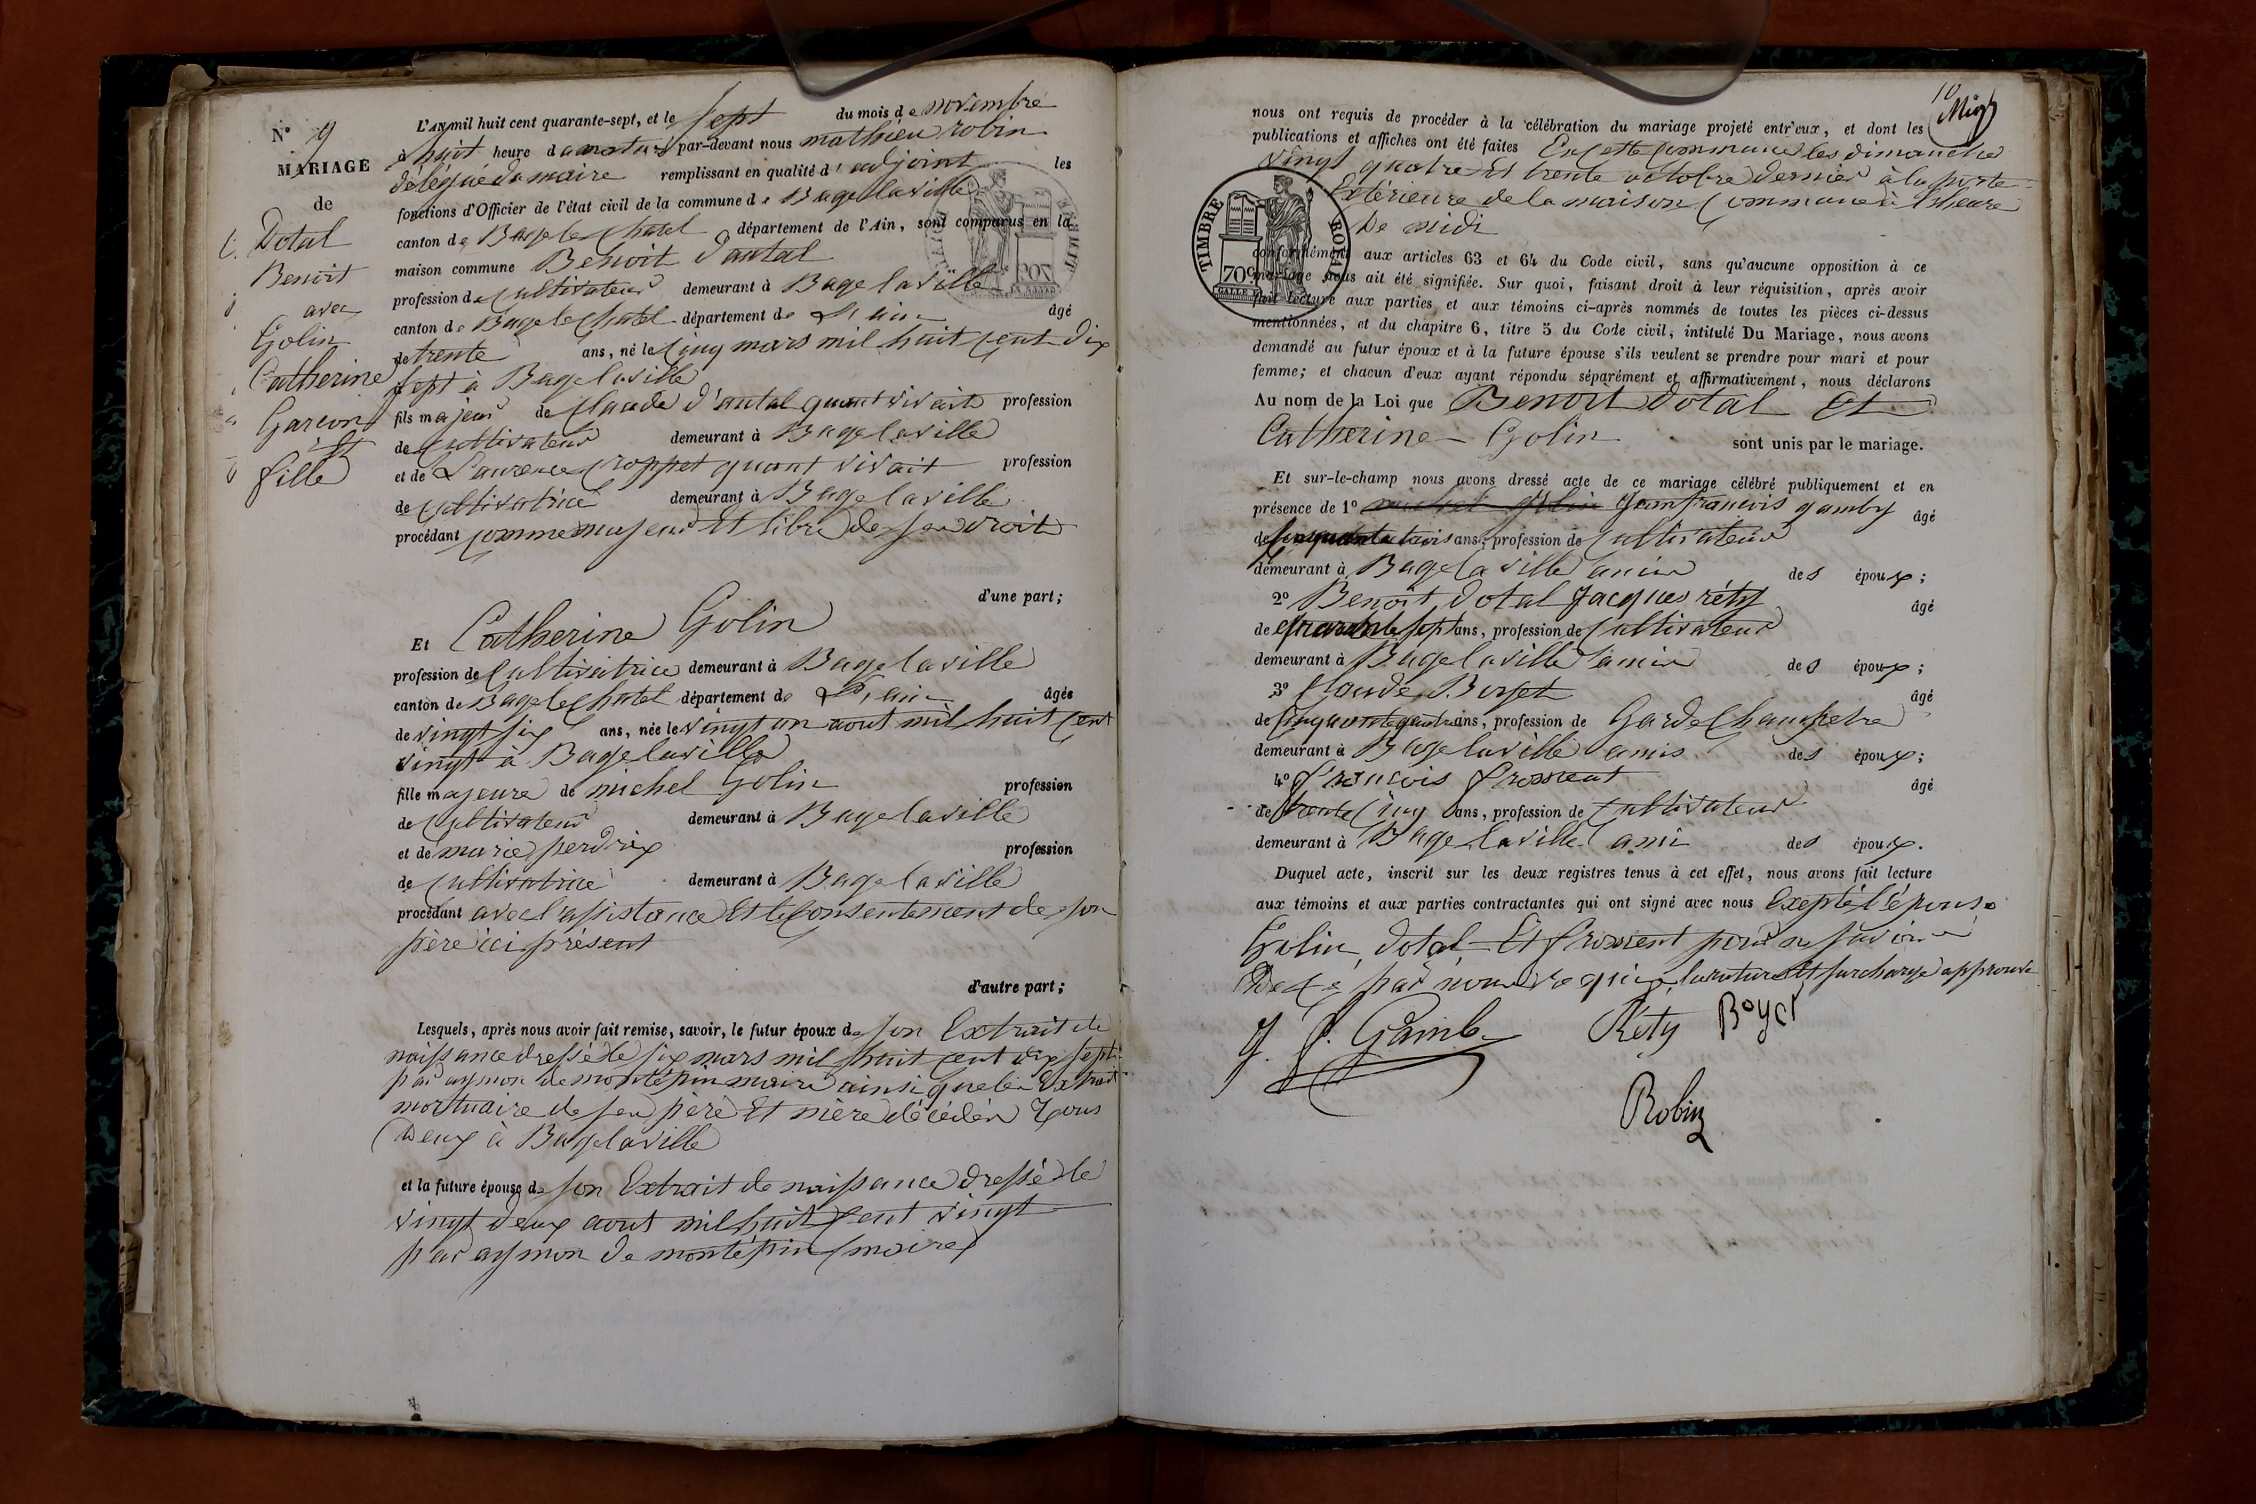 N° 9
MARIAGE
de
Dotal
Benoit
avec
Golin
Catherine
Garcon
Et
fille
L'AN mil huit cent quarante-sept, et le sept du mois de novembre
à huit heure du matin par-devant nous mathieu robin
délégué du maire remplissant en qualité d'adjoint les
fonctions d'Officier de l'état civil de la commune de Bagelaville
canton de Bagelechatel département de l'Ain, sont comparus en la
maison commune Benoit Dautal
profession de Cultivateur demeurant à Bagelaville
canton de Bagelechatel département de L'ain âgé
de trente ans, né le Cinq mars mil huit Cent dix
sept à Bagelaville
fils majeur de Claude d'autal quant vivait profession
de Cultivateur demeurant à Bagelaville
et de Laurence Croppet quant vivait profession
de Cultivatrice demeurant à Bagelaville
procédant comme majeur Et libre de ses droit
d'une part;
Et Catherine Golin
profession de Cultivatrice demeurant à Bagelaville
canton de Bagelechatel département de L'ain âgée
de vingt six ans, née le vingt un aout mil huit Cent
vingt à Bagelaville
fille majeure de michel Golin profession
de Cultivateur demeurant à Bagelaville
et de marie perdrix profession
de Cultivatrice demeurant à Bagelaville
procédant avec l'assistance Et le Consentement de son
père ici présent
d'autre part;
Lesquels, après nous avoir fait remise, savoir, le futur époux de son Extrait de
naissance dressé le six mars mil huit cent dix sept
par aymon de montépin maire ainsi que les Extrait
mortuaire de ses père Et mère décédés Tous
Deux à Bagelaville
et la future épouse de son Extrait de naissance dressé le
vingt deux aout mil huit Cent vingt
par aymon de montépin maire
10
nous ont requis de procéder à la célébration du mariage projeté entr'eux, et dont les
publications et affiches ont été faites En Cette Commune les dimanche
vingt quatre Et trente octobre dernier à la porte
Extérieure de la maison Commune à l'heure
De midi
TIMBRE ROYAL
70c
conformément aux articles 63 et 64 du Code civil, sans qu'aucune opposition à ce
mariage nous ait été signifiée. Sur quoi, faisant droit à leur réquisition, après avoir
fait lecture aux parties et aux témoins ci-après nommés de toutes les pièces ci-dessus
mentionnées, et du chapitre 6, titre 5 du Code civil, intitulé Du Mariage, nous avons
demandé au futur époux et à la future épouse s'ils veulent se prendre pour mari et pour
femme; et chacun d'eux ayant répondu séparément et affirmativement, nous déclarons
Au nom de la Loi que Benoit Dotal Et
Catherine Golin sont unis par le mariage.
Et sur-le-champ nous avons dressé acte de ce mariage célébré publiquement et en
présence de 1° michel Golin Jean francois gamby âgé
de Cinquante trois ans, profession de Cultivateur
demeurant à Bagelaville amis des époux;
2° Benoit Dotal Jacques réty âgé
de quarante sept ans, profession de Cultivateur
demeurant à Bagelaville amis des époux;
3° Claude Boyet âgé
de Cinquante quatre ans, profession de Garde Champetre
demeurant à Bagelaville amis des époux;
4° francois froment âgé
de trente Cinq ans, profession de Cultivateur
demeurant à Bagelaville ami des époux.
Duquel acte, inscrit sur les deux registres tenus à cet effet, nous avons fait lecture
aux témoins et aux parties contractantes qui ont signé avec nous Exepté l'épouse
Golin, Dotal Et froment pour ne savoir
De ce par nous requis la rature Et surcharge approuvé
J. f. Gamby Réty Boyet
Robin